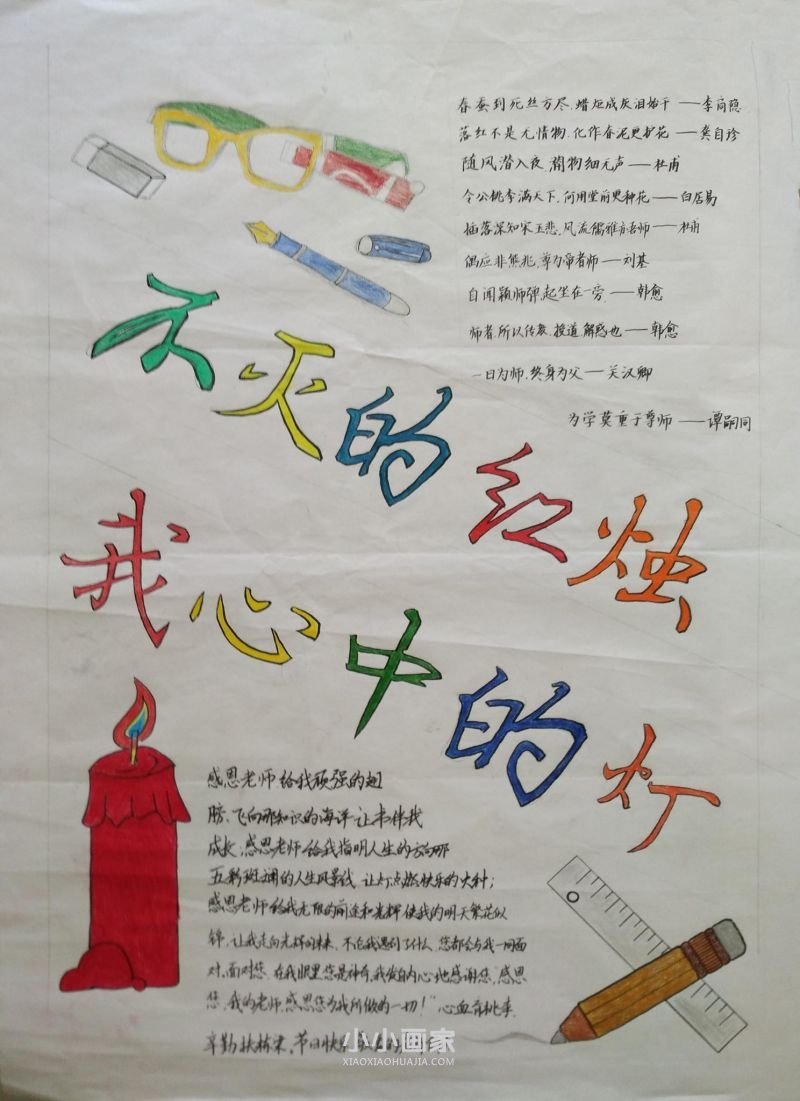 春蚕到死丝方尽,蜡炬成灰泪始干——李商隐
落红不是无情物,化作春泥更护花——龚自珍
随风潜入夜,润物细无声——杜甫
令公桃李满天下,何用堂前更种花——白居易
摇落深知宋玉悲,风流儒雅亦吾师——杜甫
偶应非熊兆,尊为帝者师——刘基
自闻颖师弹,起坐在一旁——韩愈
师者,所以传教、授道、解惑也——韩愈
一日为师,终身为父——关汉卿
为学莫重于尊师——谭嗣同
不灭的红烛
我心中的灯
感恩老师,给我顽强的翅
膀,飞向那知识的海洋,让书伴我
成长,感恩老师给我指明人生的方向,那
五彩斑斓的人生风景线,让灯点燃快乐的火种;
感恩老师给我无限的前途和光辉,使我的明天繁花似
锦,让我走向光辉的未来,不论我遇到了什么,您都会与我一同面
对,面对您,在我眼里您是神奇,我发自内心地感谢您,感恩
您,我的老师,感恩您为我所做的一切!"心血育桃李,
辛勤扶栋梁,节日快
小小画家
XIAOXIAOHUAJIA.COM